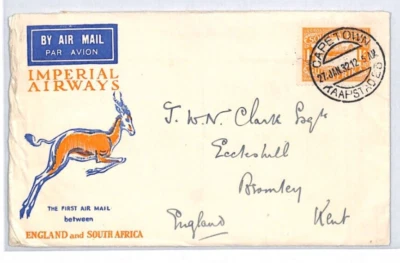 BY AIR MAIL
PAR AVION
IMPERIAL
AIRWAYS
THE FIRST AIR MAIL
between
ENGLAND and SOUTH AFRICA
CAPETOWN
27 JAN 32 12
KAAPSTAD
T. W. N. Clark Esqre
Eccleshill
Bromley
Kent
England